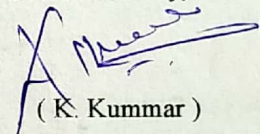 ( K. Kummar )